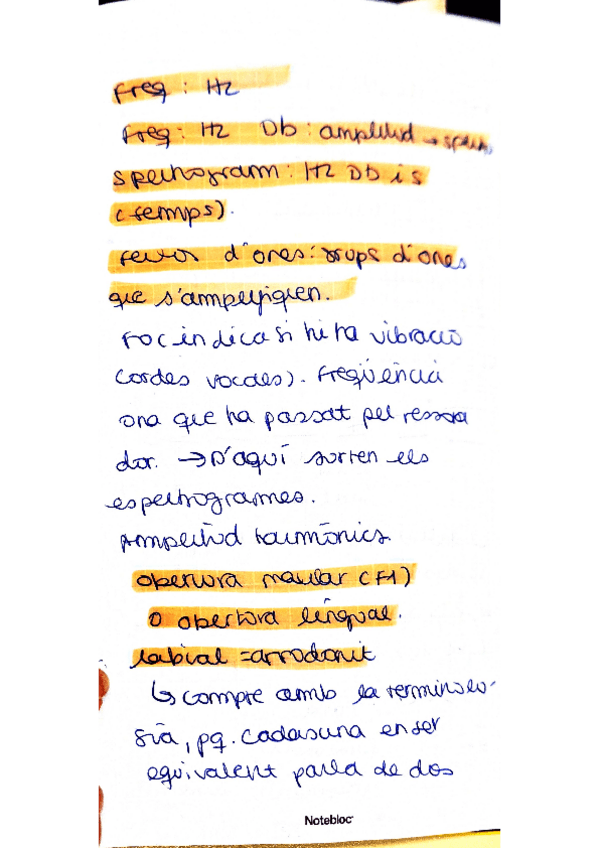 Freq : Hz
Freq : Hz Db : amplitud →
spectrogram : Hz Db i s
(temps).
d'ones: grups d'ones
que s'amplifiquen.
Foc indica si hi ha vibració
cordes vocales). Freqüència
ona que ha passat pel ressona
dor. → D'aquí surten els
espectrogrames.
Amplitud harmònics
obertura maxilar (F1)
o obertura lingual.
labial = arrodonit
↳ compre amb la terminolo-
gia, pq. cadascuna en ser
equivalent parla de dos
Notebloc